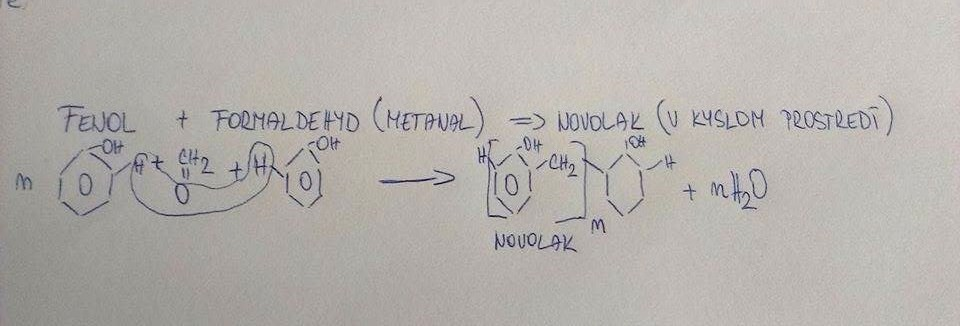 FENOL + FORMALDEHYD (METANAL) => NOVOLAK (V KYSLOM PROSTREDÍ)
n OH H + CH2 O + H OH → H [ OH CH2 ]n OH H + nH2O
NOVOLAK